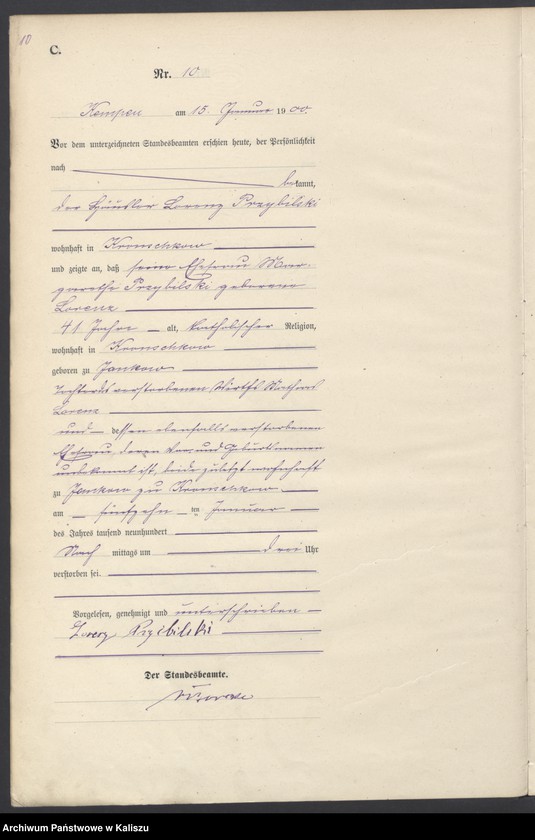 10
C.
Nr. 10
Kempen am 15. Januar 1900.
Vor dem unterzeichneten Standesbeamten erschien heute, der Persönlichkeit
nach
bekannt,
der Häusler Lorenz Przybilski
wohnhaft in
und zeigte an, daß seine Ehefrau Mar-
garethe Przybilski geborene
Lorenz
41 Jahre alt, katholischer Religion,
wohnhaft in
geboren zu Jankow
Tochter des verstorbenen Wirths
Lorenz
und dessen ebenfalls verstorbenen
Ehefrau, deren Vor und Geburtsnamen
unbekannt ist, beide zuletzt wohnhaft
zu Jankow zu
am fünfzehnten Januar
des Jahres tausend neunhundert
Nach mittags um drei Uhr
verstorben sei.
Vorgelesen, genehmigt und unterschrieben
Przibilski
Der Standesbeamte.
Archiwum Państwowe w Kaliszu